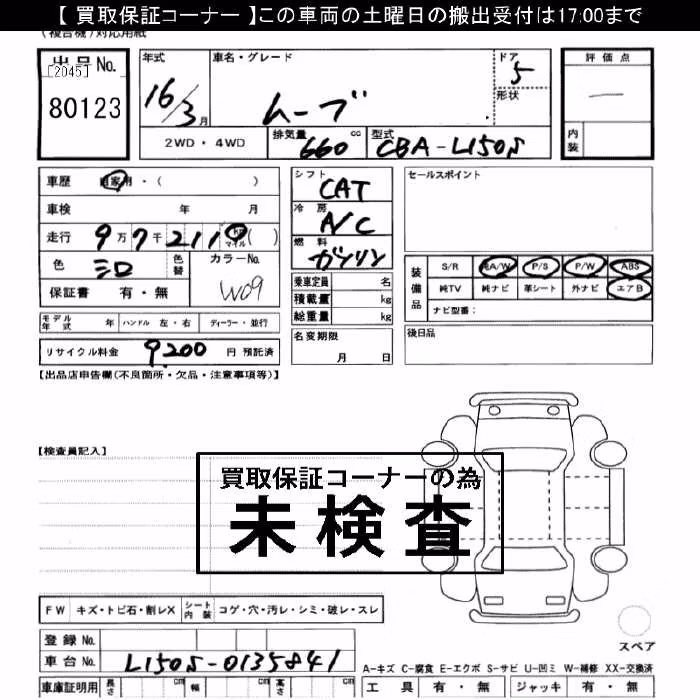 【 買取保証コーナー 】この車両の土曜日の搬出受付は17:00まで
(複合機)対応用紙
出品No.
[2045]
80123
年式
16/3
月
車名・グレード
ムーブ
ドア
5
形状
評価点
—
内装
2WD ・ 4WD
排気量
660
cc
型式
CBA-L150S
車歴
自家用 ・ ( )
車検 年 月
走行 9万7千2110 マイル ( )
色
シロ
色替
カラーNo.
W09
保証書 有・無
シフト
CAT
冷房
A/C
燃料
ガソリン
乗車定員 名
積載量 kg
総重量 kg
セールスポイント
装備品
S/R 純A/W P/S P/W ABS
純TV 純ナビ 革シート 外ナビ エアB
ナビ型番：
モデル年式 年 ハンドル 左・右 ディーラー・並行
リサイクル料金 9,200 円 預託済
名変期限
月 日
後日品
【出品店申告欄(不良箇所・欠品・注意事項等)】
【検査員記入】
買取保証コーナーの為
未検査
FW キズ・トビ石・割レX
シート内装 コゲ・穴・汚レ・シミ・破レ・スレ
登録 No.
車台 No. L150S-0135841
車庫証明用 長さ cm 幅 cm 高さ cm
スペア
A-キズ C-腐食 E-エクボ S-サビ U-凹ミ W-補修 XX-交換済
工具 有・無 ジャッキ 有・無